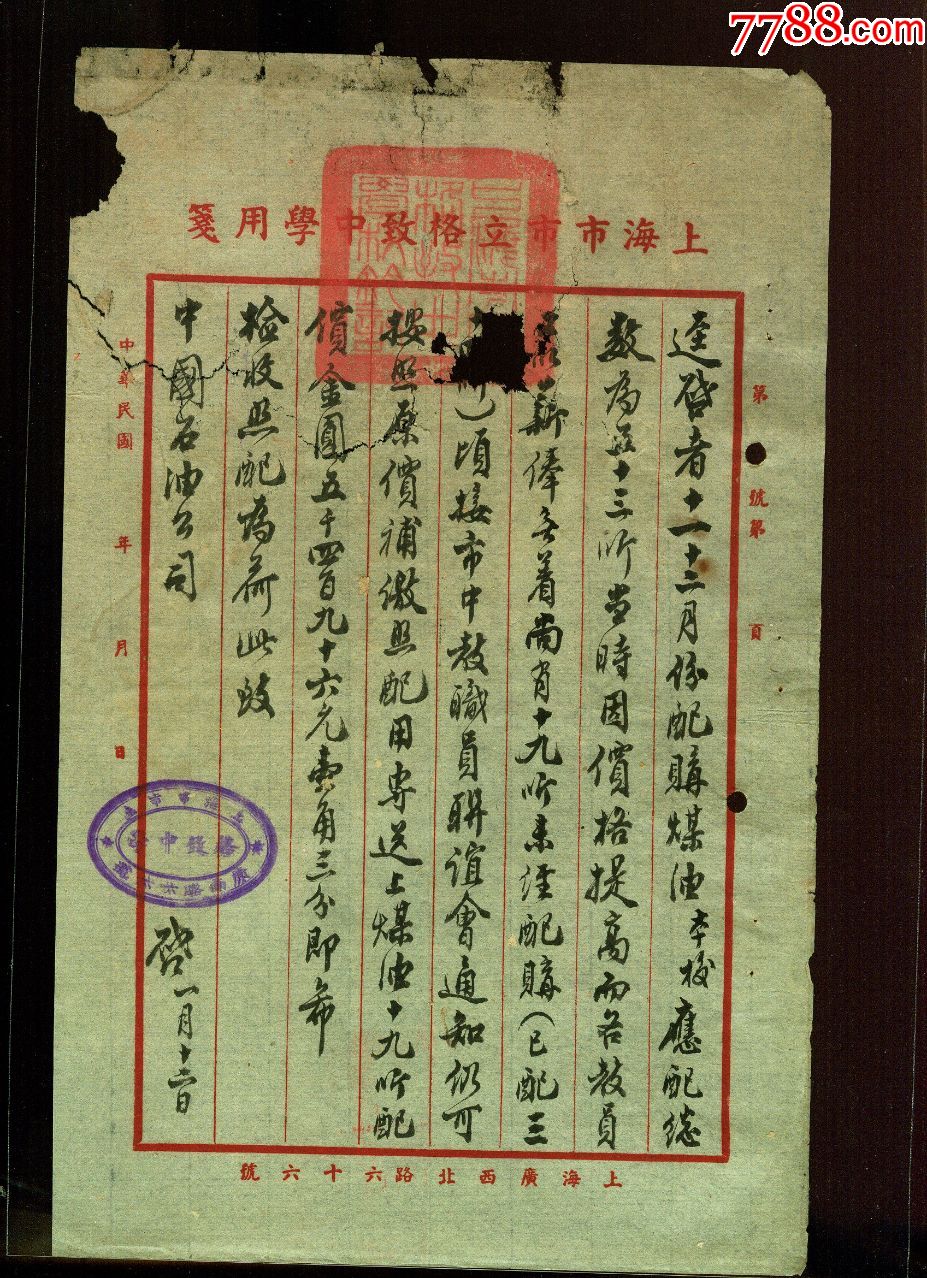 7788.com
上海市市立格致中學用箋
第 號第 頁
逕啓者十一十二月份配購煤油本校應配總
數為五十三听當時因價格提高而各教員
薪俸無着尚有十九听未經配購(已配三
听)頃接市中教職員聯誼會通知仍可
按照原價補繳照配用專送上煤油十九听配
價金圓五千四百九十六元壹角三分即希
檢收照配為荷此致
中國石油公司
啓一月十二日
中華民國 年 月 日
上海市市立
格致中學
上海廣西北路六十六號